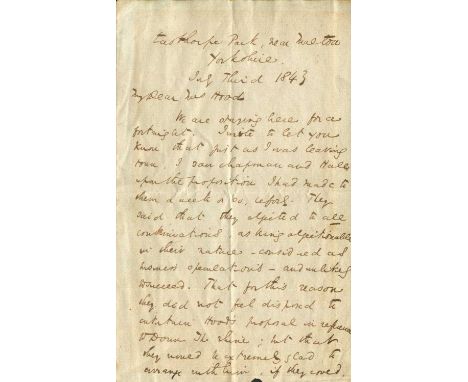 Easthorpe Park, near Malton
Yorkshire.
July Third 1843
My Dear Mrs Hood
We are staying here for a
fortnight. I write to let you
know that just as I was leaving
town I saw Chapman and Hall
upon the proposition I had made to
them a week or so, before. They
said that they objected to all
continuations as being objectionable
in their nature - considered as
business speculations - and unlikely
to succeed. That for this reason
they did not feel disposed to
entertain Hood's proposal in reference
to Down The Rhine; but that
they would be extremely glad to
arrange with him, if they could.